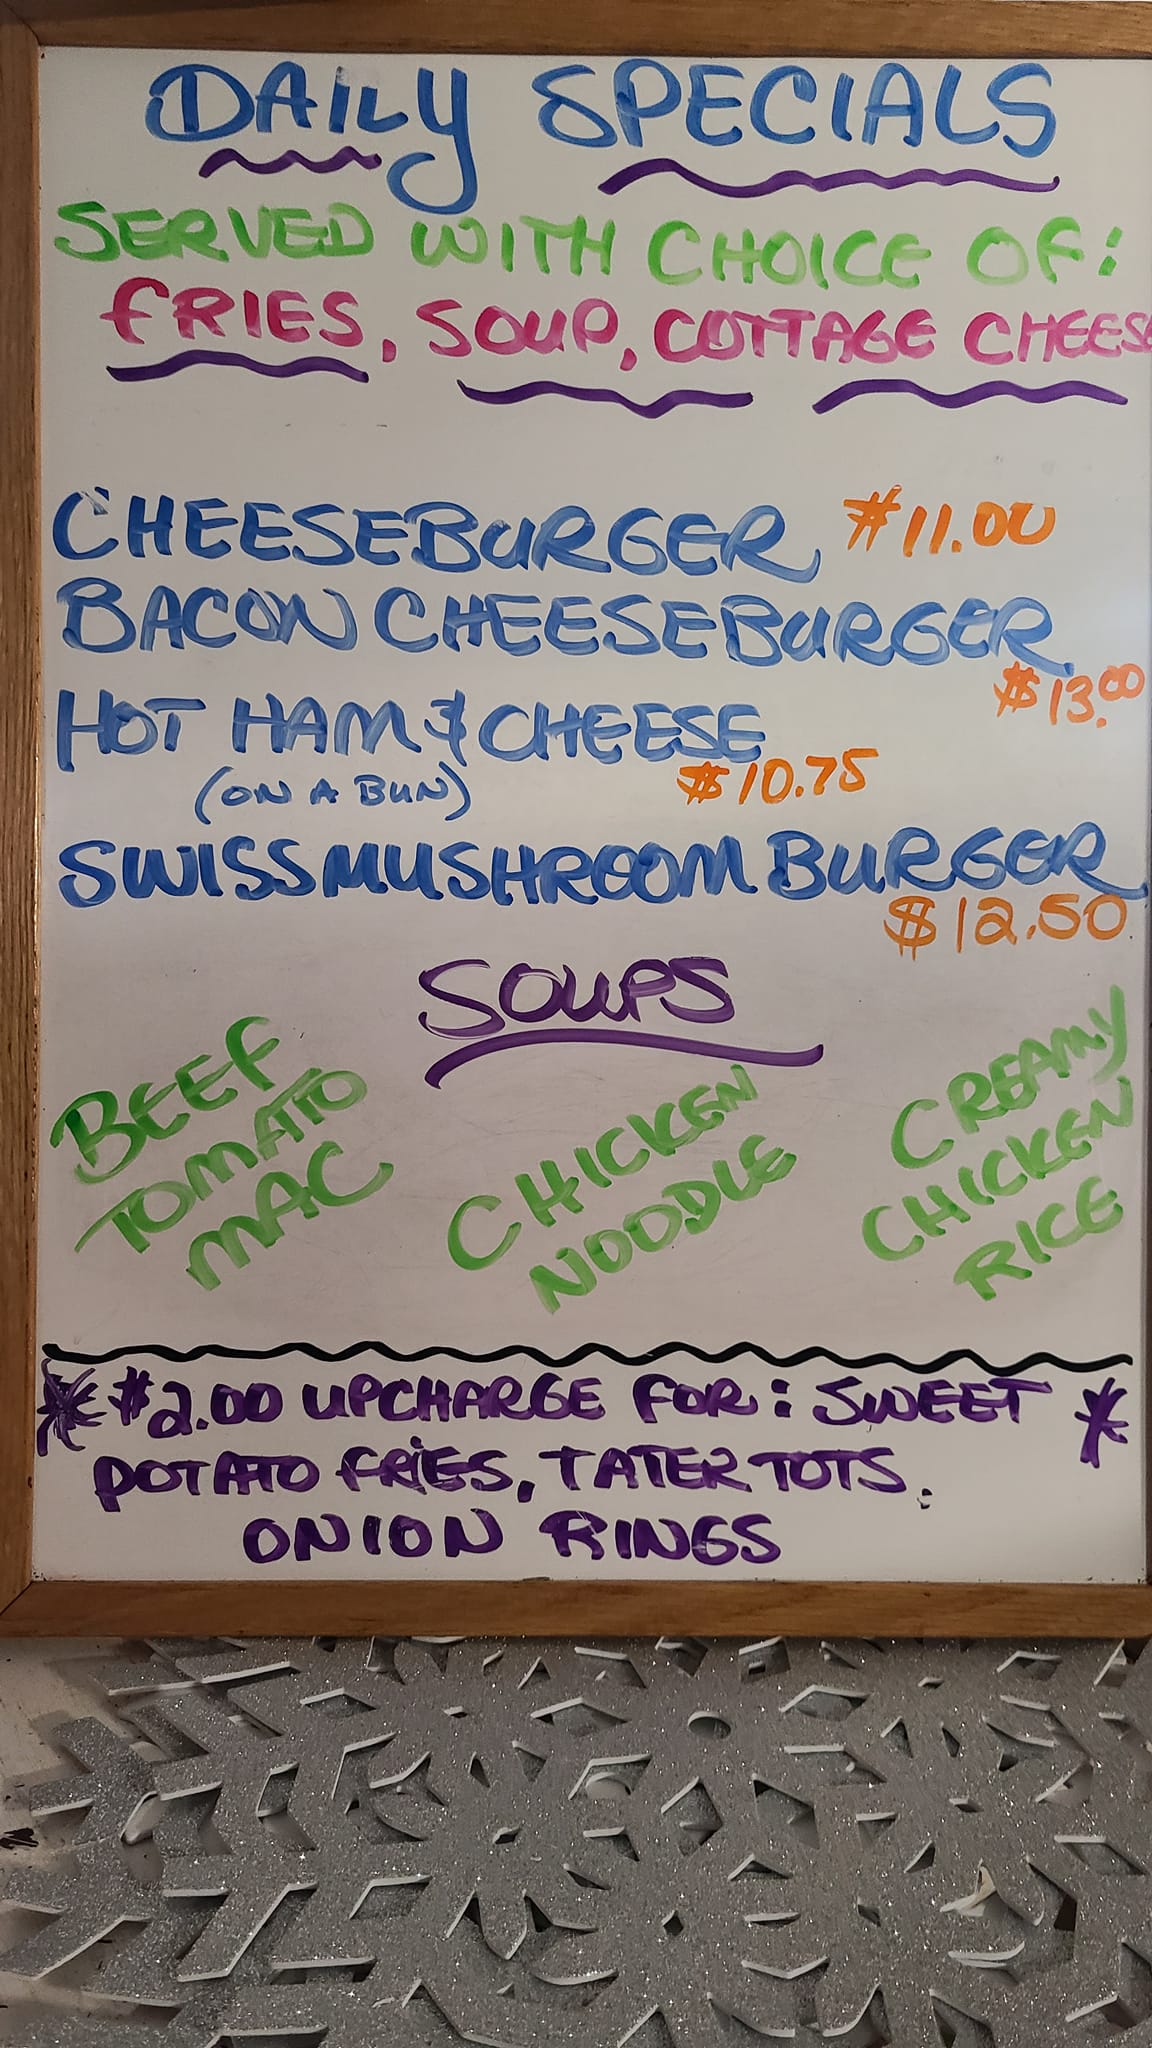 DAILY SPECIALS
SERVED WITH CHOICE OF:
FRIES, SOUP, COTTAGE CHEESE
CHEESEBURGER $11.00
BACON CHEESEBURGER
$13.00
HOT HAM & CHEESE
(ON A BUN) $10.75
SWISS MUSHROOM BURGER
$12.50
SOUPS
BEEF
TOMATO
MAC
CHICKEN
NOODLE
CREAMY
CHICKEN
RICE
* $2.00 UPCHARGE FOR: SWEET *
POTATO FRIES, TATER TOTS,
ONION RINGS